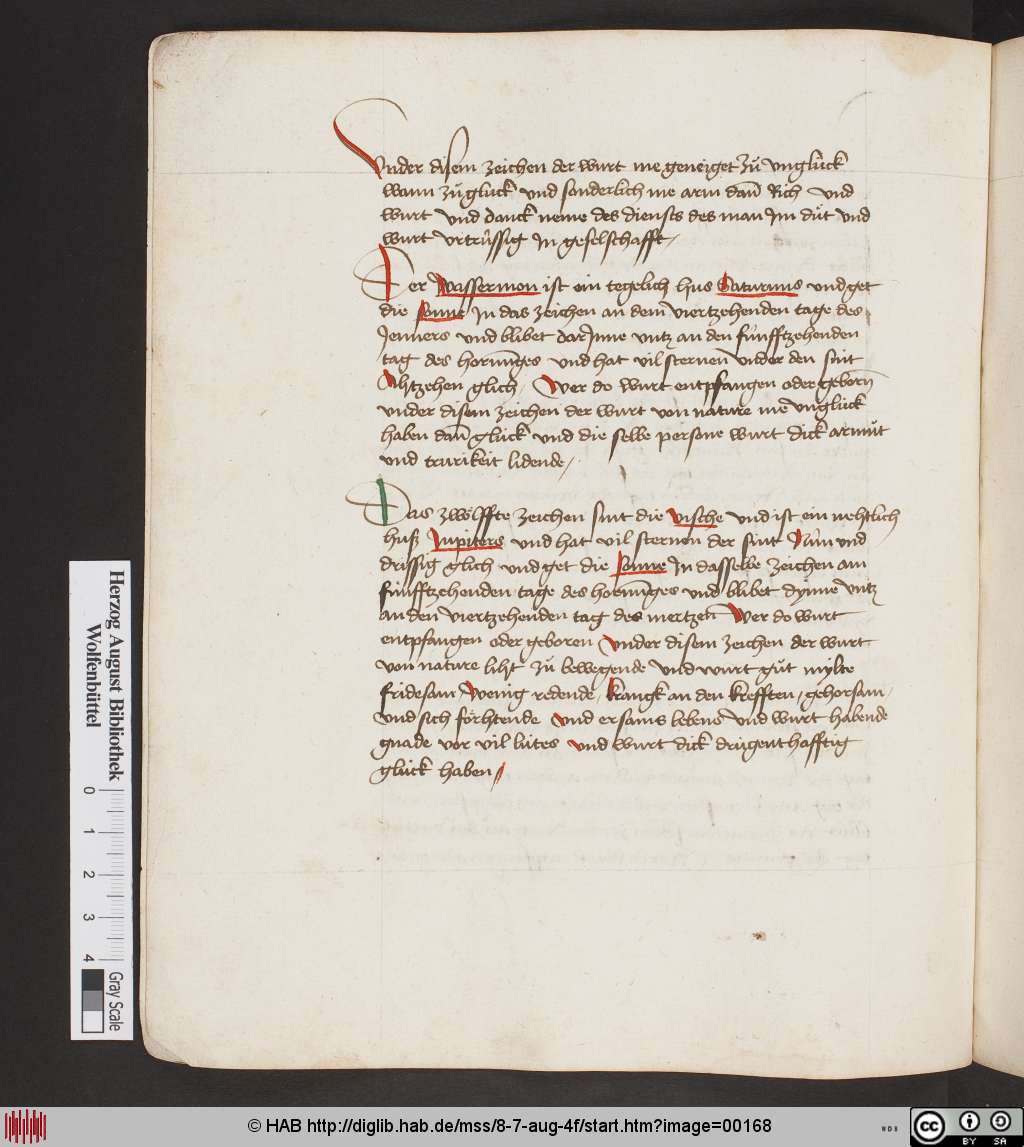 Vnder disem zeichen der wurt me geneiget zů vnglück
wann zů glück vnd sonderlich me arm dañ Rich vnd
wurt vnd danck neme des diensts des man Im düt vnd
wurt vrtrüssig In geselschafft
Der Wassermon ist ein tegelich hus Saturnus vnd get
die sonne In das zeichen an dem viertzehenden tage des
Jenners vnd blibet dar Inne vntz an den fünfftzehenden
tag des hornu̅ges vnd hat vil sternen vnder den sint
Ahtzehen glich / Wer do wurt entpfangen oder geborn
vnder disem zeichen der wurt von nature me vnglück
haben dañ glück vnd die selbe persone wurt dick armůt
vnd trurikeit lidende /
Das zwölffte zeichen sint die vische vnd ist ein nehtlich
huß Jupiters vnd hat vil sternen der sint Nün vnd
drissig glich vnd get die sonne In dasselbe zeichen am
fünfftzehenden tage des hornu̅ges vnd blibet dynne vntz
an den viertzehenden tag des mertzen Wer do wurt
entpfangen oder geboren vnder disem zeichen der wurt
von nature liht zü bewegende vnd wurt gůt mylte
fridesam Wenig redende / krangk an den krefften / gehorsam /
vnd sich förhtende vnd ersams lebens vnd wurt habende
gnade vor vil lütes vnd wurt dick drügenthafftig
glück haben /
Herzog August Bibliothek
Wolfenbüttel
0 1 2 3 4
Gray Scale
© HAB http://diglib.hab.de/mss/8-7-aug-4f/start.htm?image=00168
WDB
cc BY SA